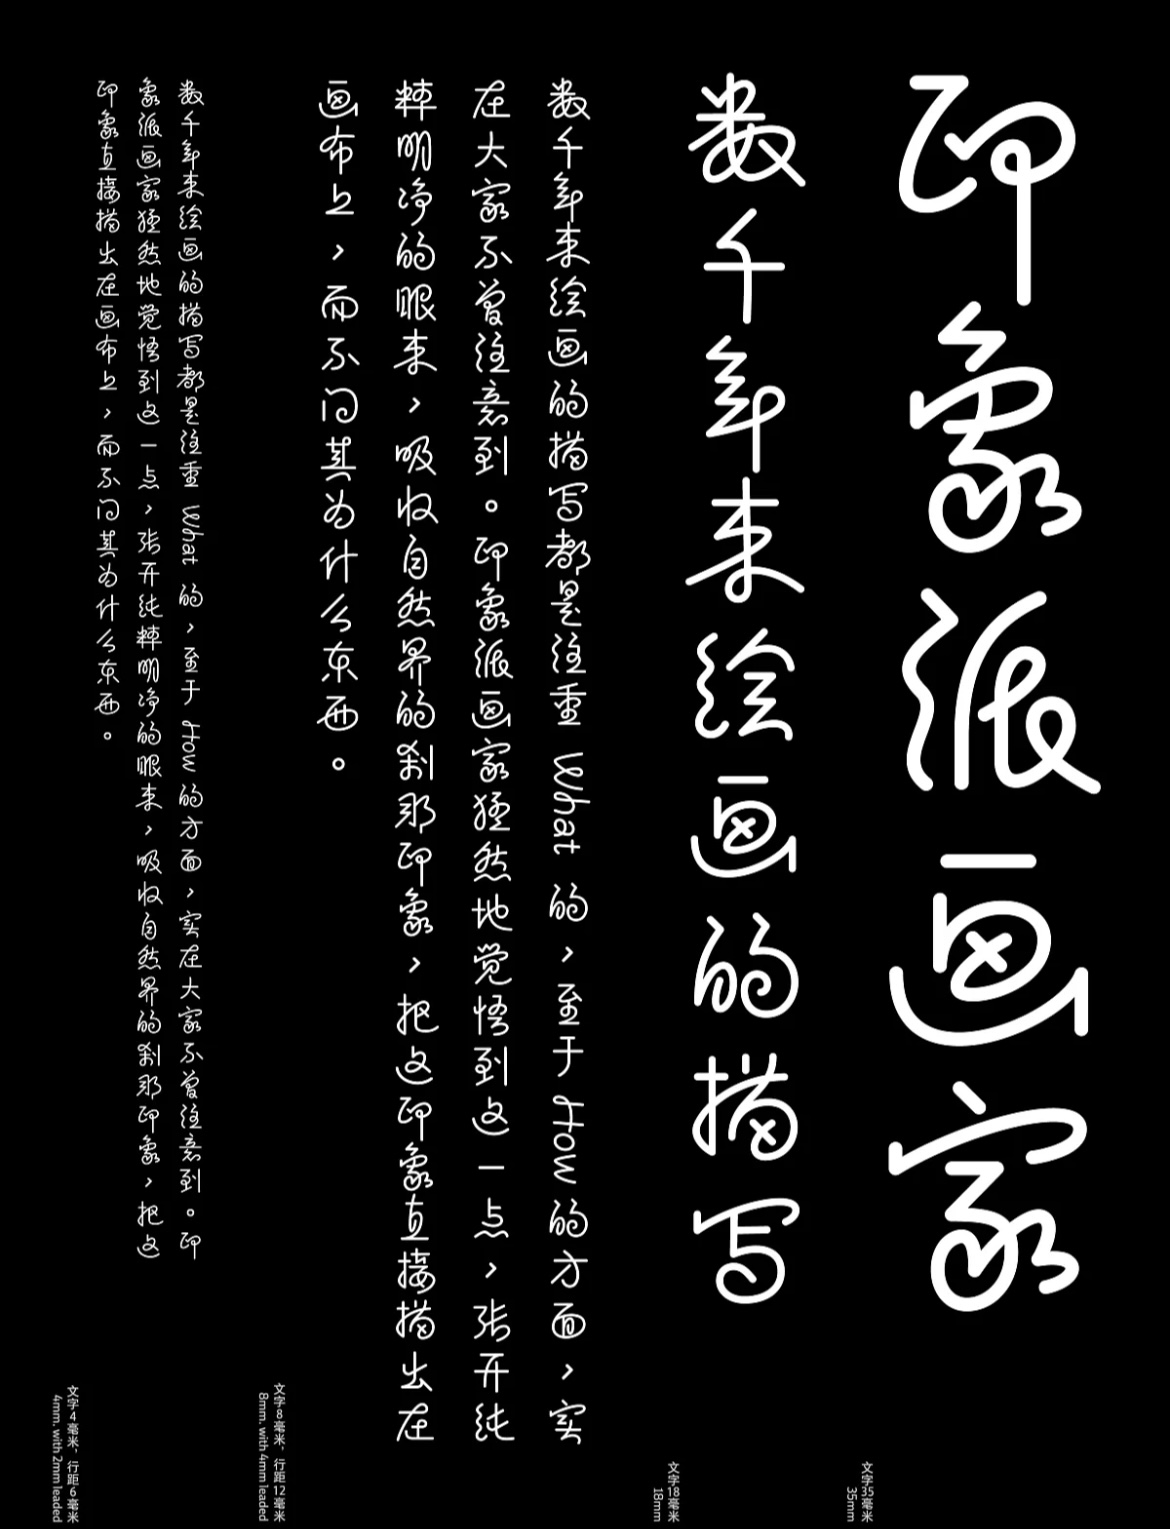 印象派画家
文字35毫米
35mm
数千年来绘画的描写
文字18毫米
18mm
数千年来绘画的描写都是注重 What 的，至于 How 的方面，实
在大家不曾注意到。印象派画家猛然地觉悟到这一点，张开纯
粹明净的眼来，吸收自然界的刹那印象，把这印象直接描出在
画布上，而不问其为什么东西。
文字8毫米，行距12毫米
8mm. with 4mm leaded
数千年来绘画的描写都是注重 What 的，至于 How 的方面，实在大家不曾注意到。印
象派画家猛然地觉悟到这一点，张开纯粹明净的眼来，吸收自然界的刹那印象，把这
印象直接描出在画布上，而不问其为什么东西。
文字4毫米，行距6毫米
4mm. with 2mm leaded